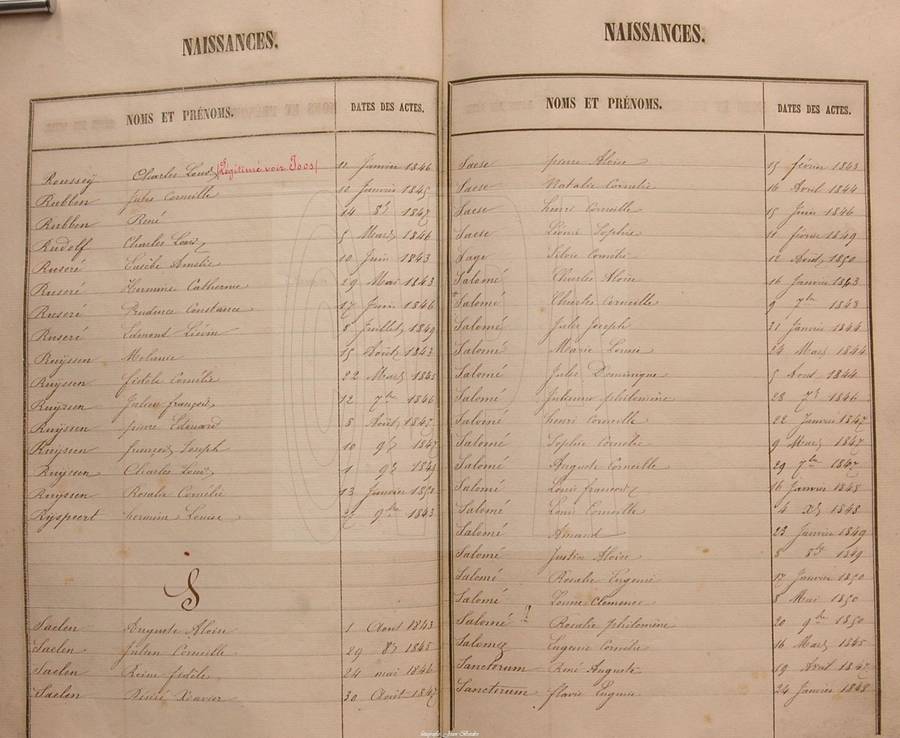 NAISSANCES.
NOMS ET PRÉNOMS. DATES DES ACTES.
Roussey Charles Louis (Légitimé voir Joos) 11 Janvier 1846
Rubben Jules Corneille 12 Janvier 1845
Rubben René 14 8b 1847
Rudolf Charles Louis 5 Mars 1846
Ruseré Eusèbe Amélie 10 Juin 1843
Ruseré Hermine Catherine 29 Mai 1843
Ruseré Prudence Constance 17 Juin 1846
Ruseré Edmond Liévin 8 Juillet 1849
Ruyssen Mélanie 15 Août 1843
Ruyssen fidèle Cornélie 22 Mars 1845
Ruyssen Julien françois 12 7bre 1846
Ruyssen pierre Edouard 8 Août 1847
Ruyssen françois Joseph 10 9b 1847
Ruyssen Charles Louis 1 9b 1849
Ruyssen Rosalie Cornélie 13 Janvier 1850
Ryspeert hermine Louise 9bre 1843
S
Saelen Auguste Aloïse 1 Août 1843
Saelen Julien Corneille 29 1845
Saelen Reine fidèle 24 mai 1846
Saelen Désiré Xavier 30 Août 1847
NAISSANCES.
NOMS ET PRÉNOMS. DATES DES ACTES.
Saese pierre Aloïse 15 février 1843
Saese Natalie Cornélie 16 Avril 1844
Saese henri Corneille 15 Juin 1846
Saese Léonie Sophie 11 février 1849
Sage Silvie Cornélie 12 Août 1850
Salomé Charles Aloïse 16 Janvier 1843
Salomé Charles Corneille 9 7bre 1843
Salomé Jules Joseph 21 Janvier 1844
Salomé Marie Louise 24 Mars 1844
Salomé Julie Dominique 5 Août 1844
Salomé Julienne philomène 28 7b 1846
Salomé henri Corneille 22 Janvier 1847
Salomé Sophie Cornélie 9 Mars 1847
Salomé Auguste Corneille 29 7bre 1847
Salomé Louis françois 16 Janvier 1848
Salomé Louis Corneille 4 Xb 1848
Salomé Amand 23 Janvier 1849
Salomé Justin Aloïse 8 8b 1849
Salomé Rosalie Eugénie 17 Janvier 1850
Salomé Louise Clemence 8 Mai 1850
Salomé Rosalie philomène 20 9bre 1850
Salomez Eugénie Cornélie 16 Mars 1845
Sanctorum René Auguste 19 Avril 1847
Sanctorum flavie Eugénie 24 Janvier 1848